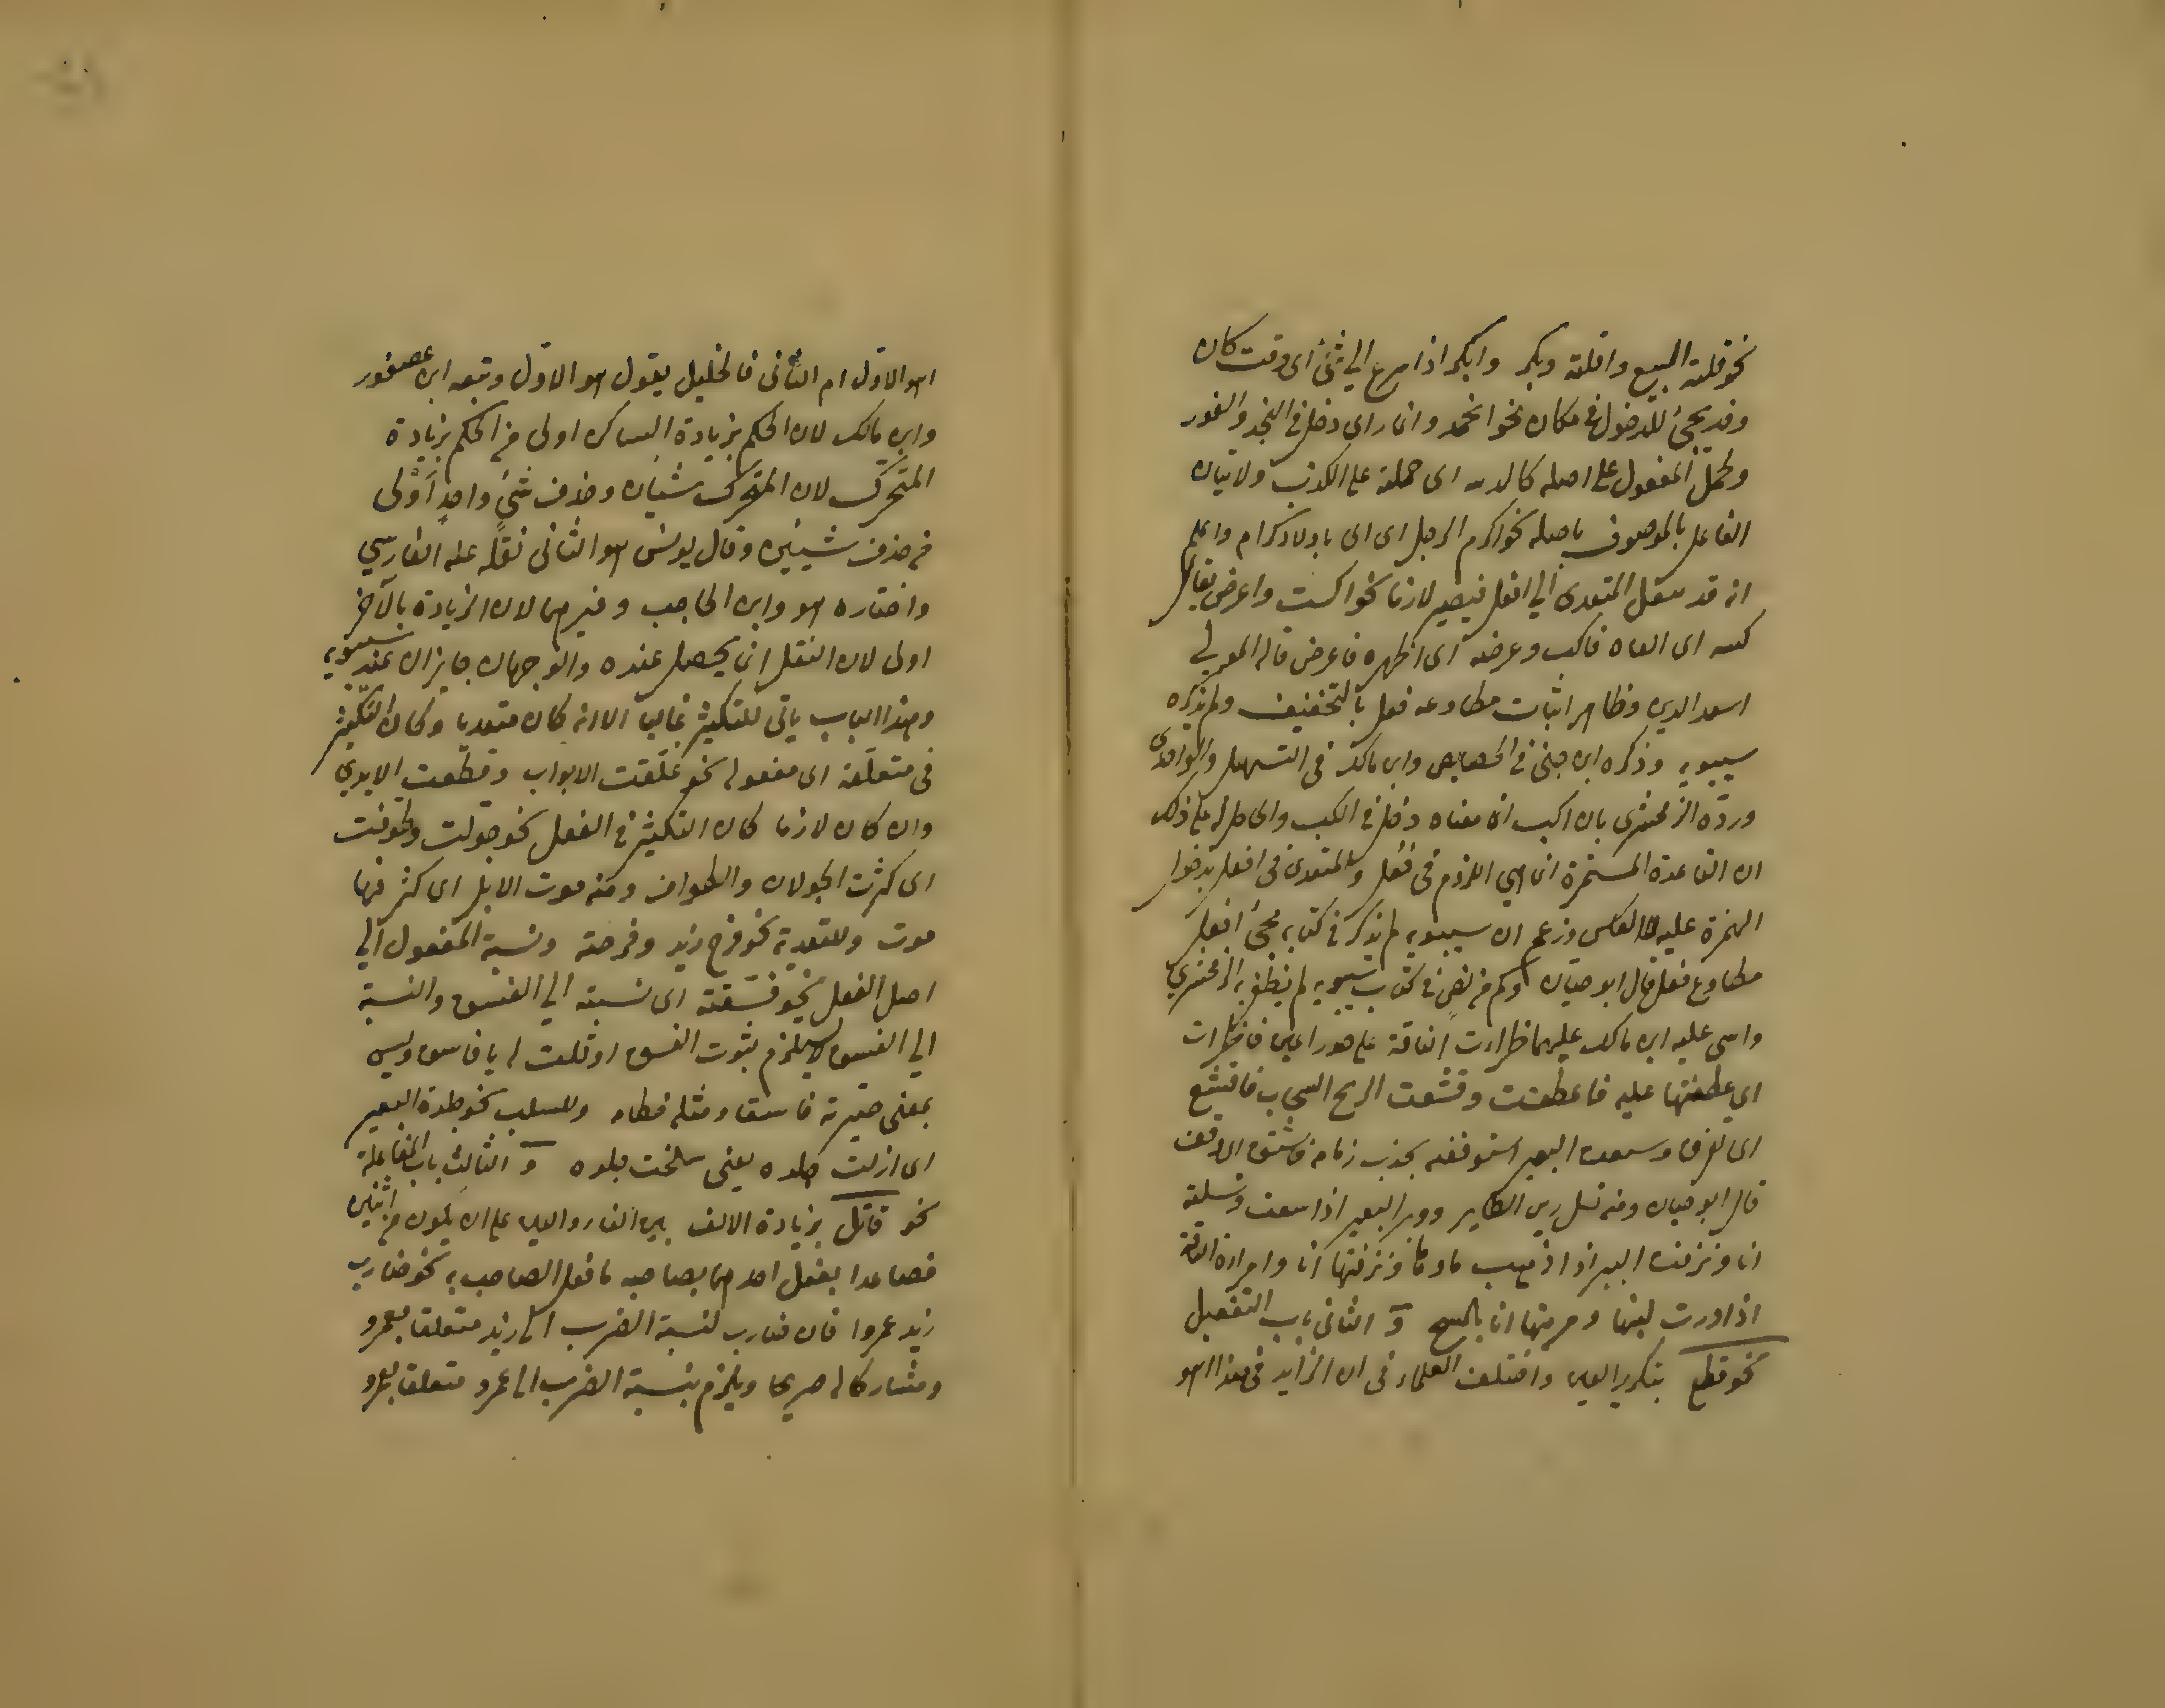 نحو قلته البيع واقلته وبكر وابكر اذا سرع الي شئ اى وقت كان
وقد يجئ للدخول في مكان نحو انجد واغار اى دخل في النجد والغور
المفعول على اصله اى حملته على الكذب ولاتيان
الفاعل بالموصوف باصله نحو اكرم الرجل اى اتى باولاد كرام واعلم
انه قد ينقل المتعدى الي افعل فيصير لازما نحو اكب واعرض يقال
كبه اى القاه فاكب وعرضه اى اظهره فاعرض قاله المعربى
اسعد الدين وظاهر اثبات مطاوعه فعل بالتخفيف ولم يذكره
سيبويه وذكره ابن جنى في الخصايص وابن مالك فى التسهيل والواحدى
وردّه الزمخشرى بان اكب ان معناه دخل في الكب والحامل له على ذلك
ان القاعدة المستمرة انما هي اللزوم فى فَعَل والمتعدى فى افعل بدخول
الهمزة عليه لا العكس وزعم ان سيبويه لم يذكر في كتابه مجئ افعل
مطاوع فعل قال ابو حيان وكم من نص في كتاب سيبويه لم يظفر به الزمخشري
ابن مالك ظارت الناقة على فاظارت
اى عطفتها عليه فاعطفت وقشعت الريح السحاب فاقشع
اى تفرق البعير استوقفه بجذب زمامه
قال ابو حيان ومنه نسل ريش الطاير ووبر البعير اذا ونسلته
انا ونزفت البير اذا ذهب ماوها ونزفتها انا وامرت الناقة
اذا درت لبنها ومريتها انا بالمسح وَ الثانى باب التفعيل
نحو قطع بتكرير العين واختلف العلماء فى ان الزايد فى هذا اهو
اهو الاول ام الثانى فالخليل يقول هو الاول وتبعه ابن عصفور
وابن مالك لان الحكم بزيادة الساكن اولى من الحكم بزيادة
المتحرك لان المتحرك شيئان وحذف شئ واحد أولى
من حذف شيئين وقال يونس هو الثانى نقله عنه الفارسي
واختاره هو وابن الحاجب وغيرهما لان الزيادة بالآخر
اولى لان الثقل انما يحصل عنده والوجهان جايزان عند سيبويه
وهذا الباب ياتى للتكثير غالبا الا انه كان متعديا وكان التكثير
فى متعلقه اى مفعوله نحو غلقت الابواب وقطعت الايدي
وان كان لازما كان التكثير في الفعل نحو جولت وطوفت
اى كثرت الجولان والطواف ومنه موت الابل اى كثر فيها
موت وللتعدية نحو فرح زيد وفرحته ونسبة المفعول الي
اصل الفعل نحو فسّقته اى نسبته الي الفسق والنسبة
الي الفسق لا يلزم بثوت الفسق او قلت له يا فاسق وليس
بمعنى صيرته فاسقا ومثله وللسلب نحو جلدة البعير
اى ازلت جلده يعنى سلخت جلده وَ الثالث باب المفاعلة
نحو قاتل بزيادة الالف بين الفاء والعين على ان يكون من اثنين
فصاعدا يفعل احدهما بصاحبه ما فعل الصاحب به نحو ضارب
زيد عمروا فان ضارب لنسبة الضرب الى زيد متعلقا بعمرو
ومشاركا له صريحا ويلزم بنسبة الضرب الى عمرو متعلقا بعمرو